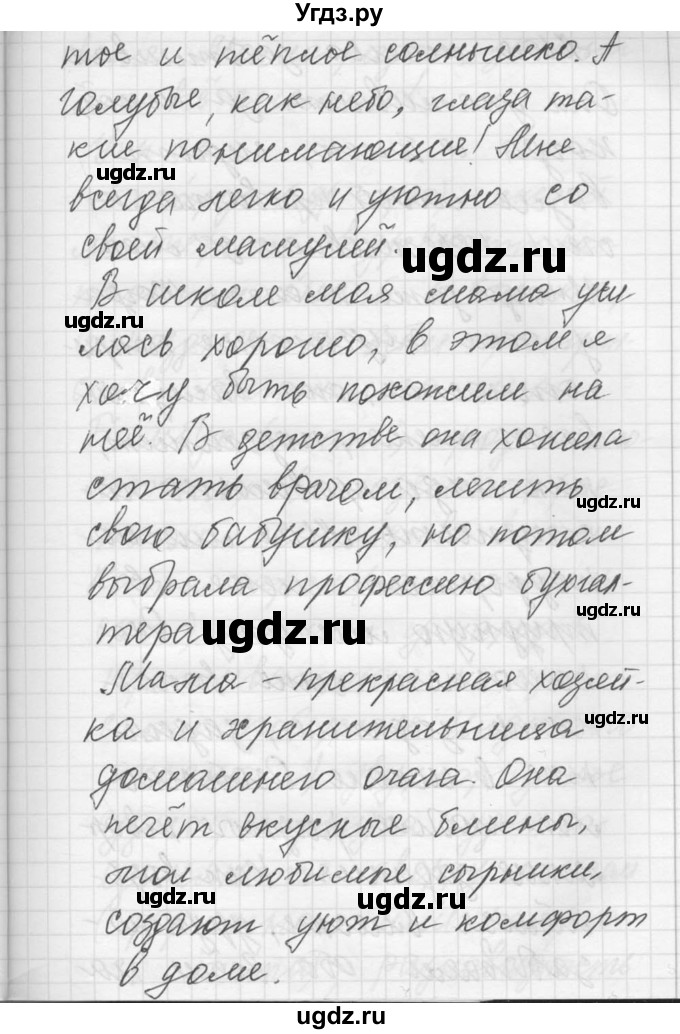 Угдз.ру
тое и тёплое солнышко. А
голубые, как небо, глаза та-
кие понимающие! Мне
ugdz.ru
всегда легко и уютно со
своей мамулей.
ugdz.ru
В школе моя мама учи
ugdz.ru
лась хорошо, в этом я
хочу быть похожем на
неё. В детстве она хотела
стать врачом, лечить
ugdz.ru
свою бабушку, но потом
выбрала профессию бухгал-
тера
ugdz.ru
Мама - прекрасная хозяй-
ка и хранительница
ugdz.ru
домашнего очага. Она
печёт вкусные блины,
мои любимые сырники,
ugdz.ru
создают уют и комфорт
в доме.
ugdz.ru
ugdz.ru